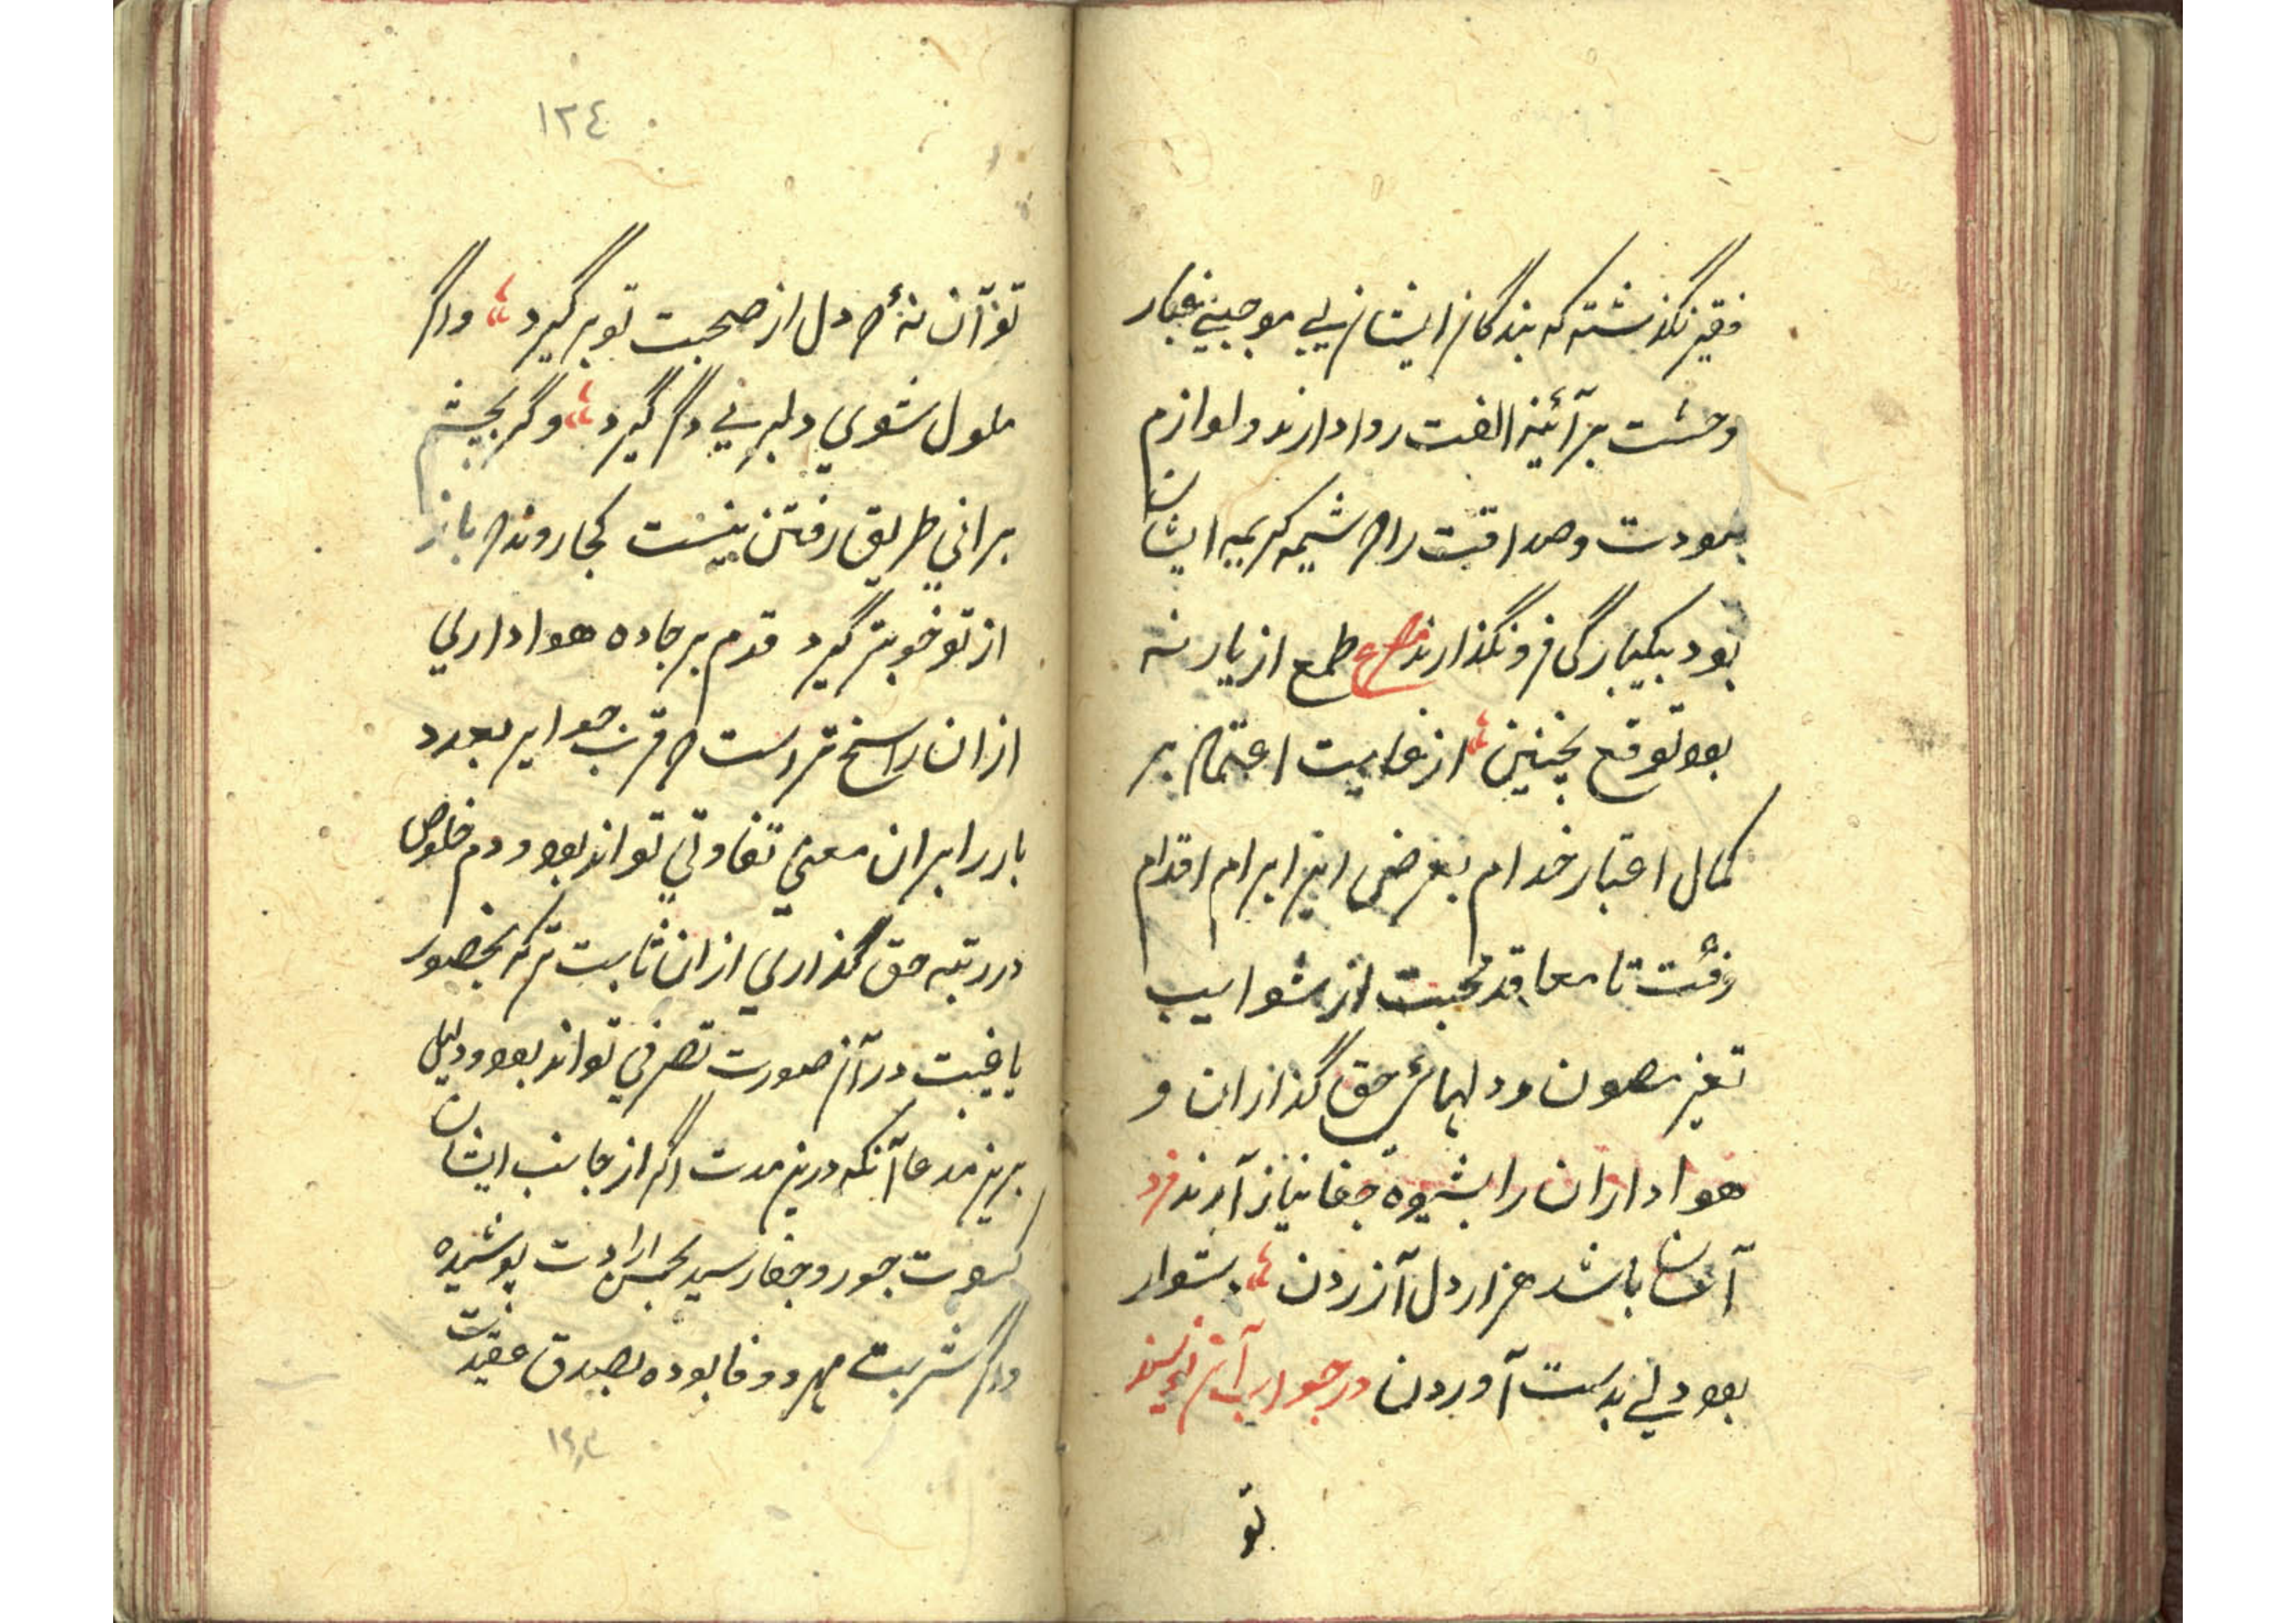 فقیر نگذشته که بندگان ایشان بی موجبی غبار
وحشت بر آئینه الفت روا دارند و لوازم
مودت و صداقت را که شیمه کریمه ایشان
بود بیکبارگی فرو نگذارند ع طمع از یار نه
بود توقع چنین از غایت اعتماد بر
کمال اعتبار خدام بعرض این ابرام اقدام
رفت تا معاقد محبت از شوایب
تغیر مصون و دلهائ حق گذاران و
هواداران را بشیوه جفا نیازارند فرد
آسان باشد هزار دل آزردن دشوار
بود دلی بدست آوردن در جواب آن نویسند
تو
١٢٤
تو آن نهٔ که دل از صحبت تو برگیرد و اگر
ملول شوی دلبری دگر گیرد و گر بخشم
برانی طریق رفتن نیست کجا روند که باز
از تو خوبتر گیرد قدم بر جاده هواداری
از ان راسخ تر است که قرب جوار یا بعد
یار را بران معنی تفاوتی تواند بود و دم خلوص
در رتبه حق گذاری از ان ثابت تر که بحضور
یا غیبت در آن صورت تصرفی تواند بود و دلیل
برین مدعا آنکه درین مدت اگر از جانب ایشان
کسوت جور و جفا رسید بحسن ارادت پوشیده
و اگر شربت مهر و وفا بوده بصدق عقیدت